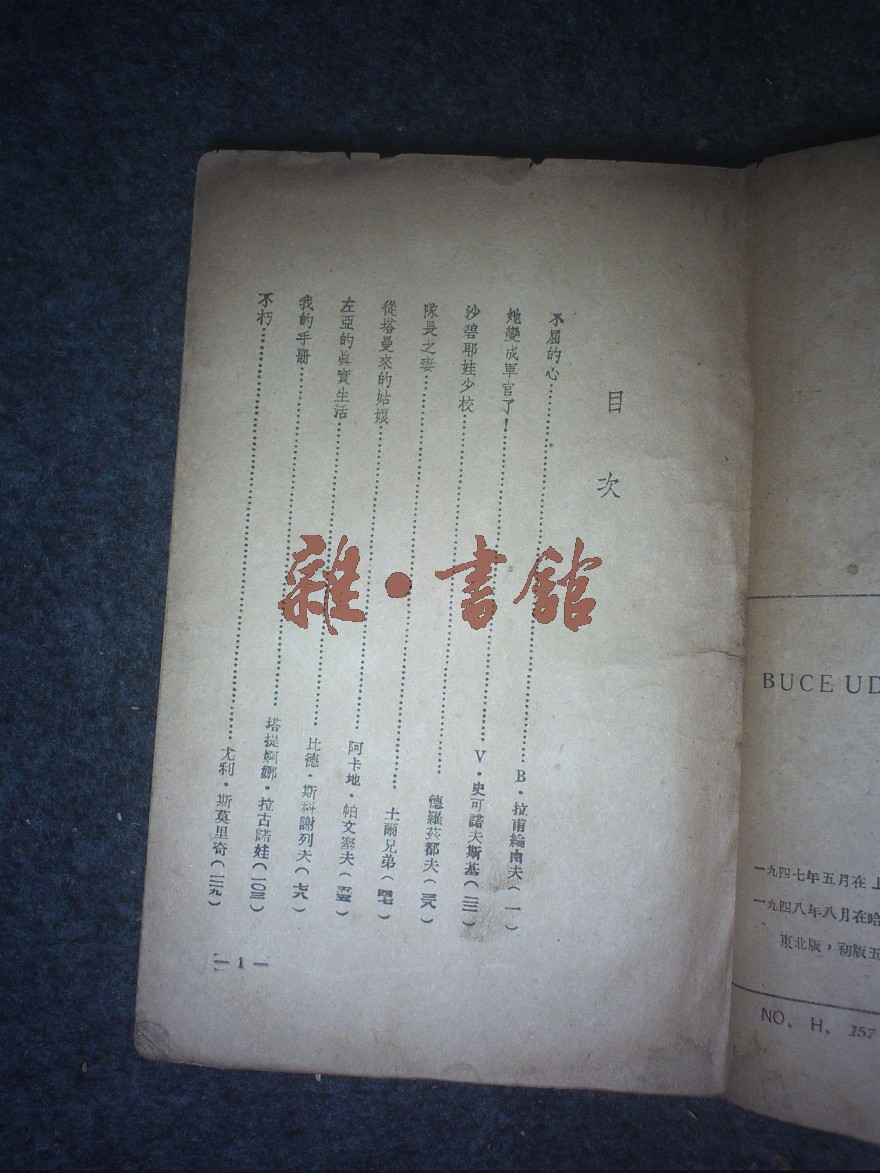 目次
不屈的心………B・拉甫綸由夫(一)
她變成軍官了!………V・史可諾夫斯基(二二)
沙碧耶娃少校………德羅茲都夫(三八)
隊長之妻………土爾兄弟(四七)
從塔曼來的姑娘………阿卡地・帕文塞夫(五五)
左亞的眞實生活………比德・斯科謝列夫(七八)
我的手冊………塔提婀娜・拉古諾娃(一〇三)
不朽………尤利・斯莫里奇(一二九)
— 1 —
雜・書館
BUCE UD
一九四七年五月在上
一九四八年八月在哈
東北版,初版五
NO. H. 157